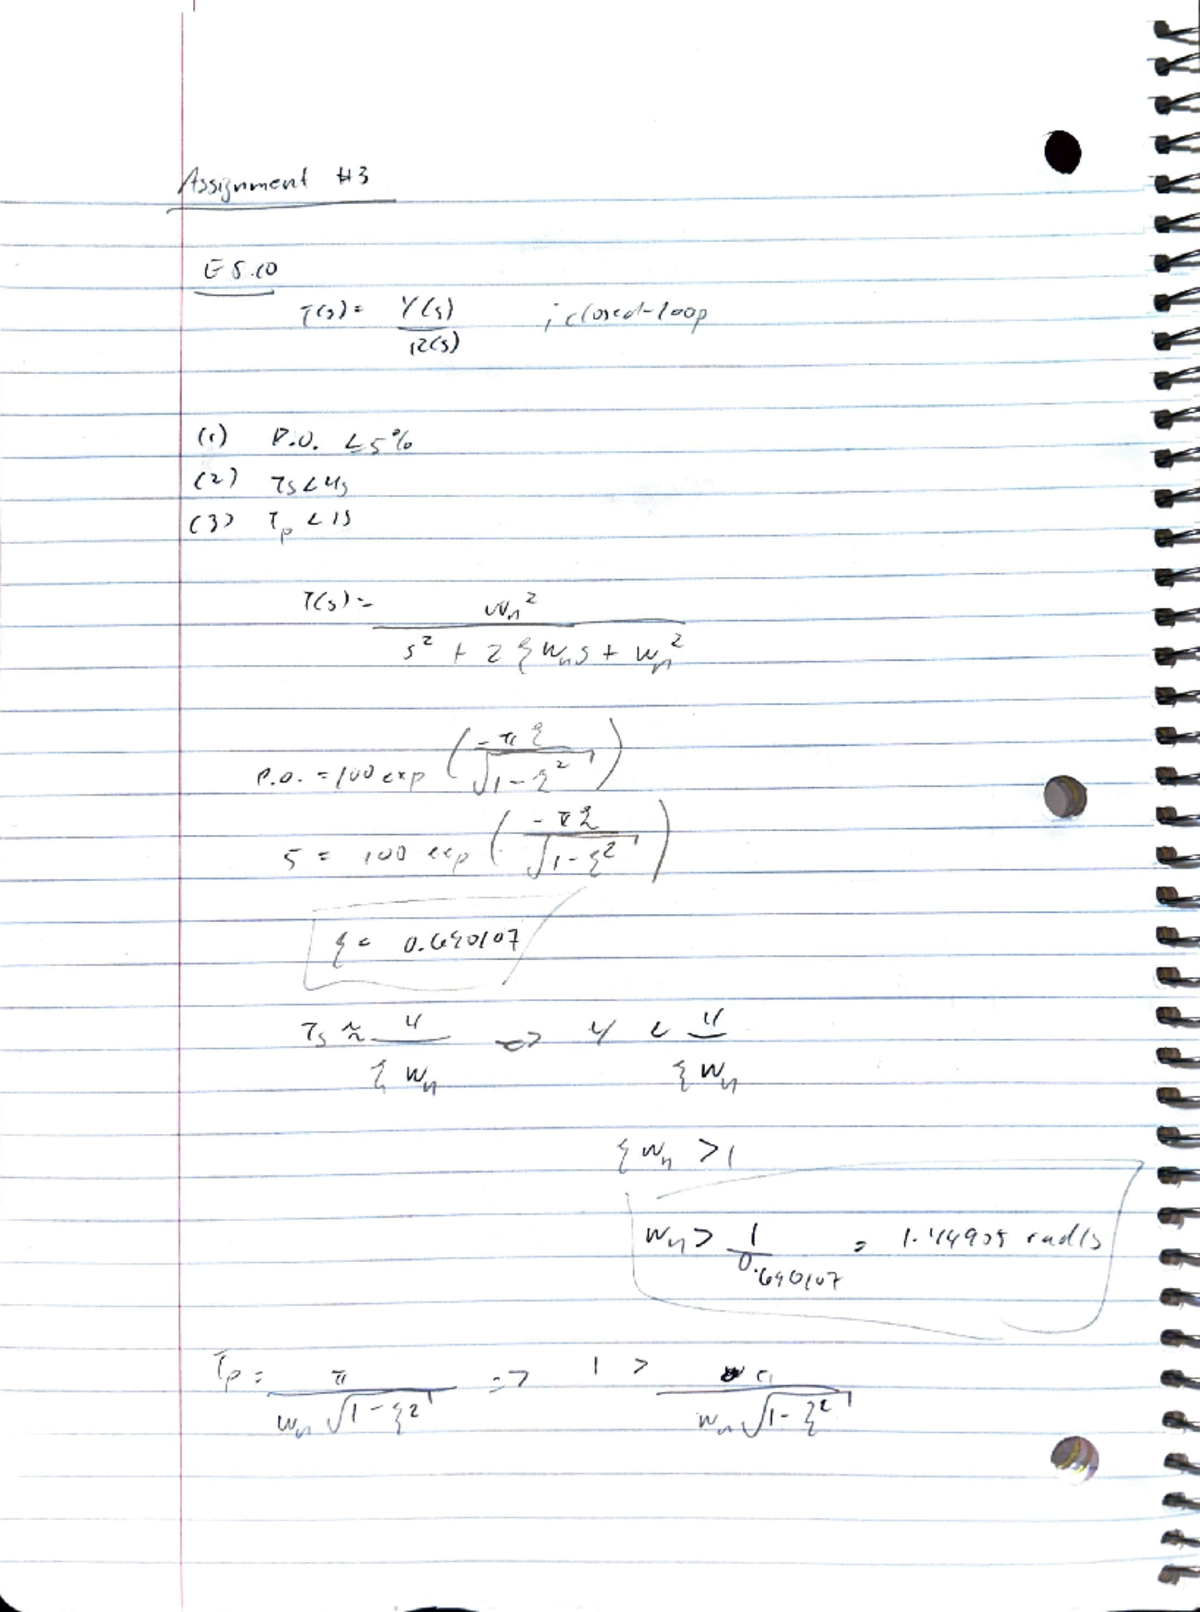 Assignment #3
E5.10
T(s) = Y(s) / R(s) ; closed-loop
(1) P.O. < 5%
(2) Ts < 4s
(3) Tp < 1s
T(s) = wn² / s² + 2ξwns + wn²
P.O. = 100 exp (-πξ / √1-ξ²)
5 = 100 exp (-πξ / √1-ξ²)
ξ = 0.690107
Ts ≈ 4 / ξwn => 4 < 4 / ξwn
ξwn > 1
wn > 1 / 0.690107 = 1.44905 rad/s
Tp = π / wn√1-ξ² => 1 > π / wn√1-ξ²